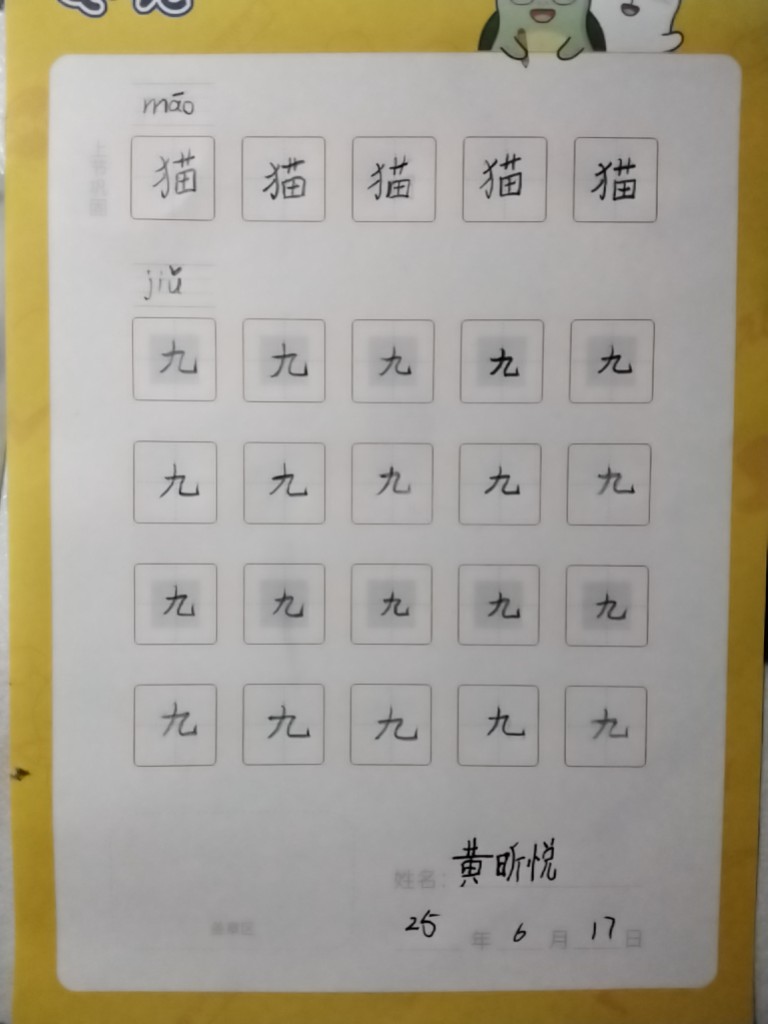 māo
猫 猫 猫 猫 猫
jiǔ
九 九 九 九 九
九 九 九 九 九
九 九 九 九 九
九 九 九 九 九
姓名: 黄昕悦
25 年 6 月 17 日